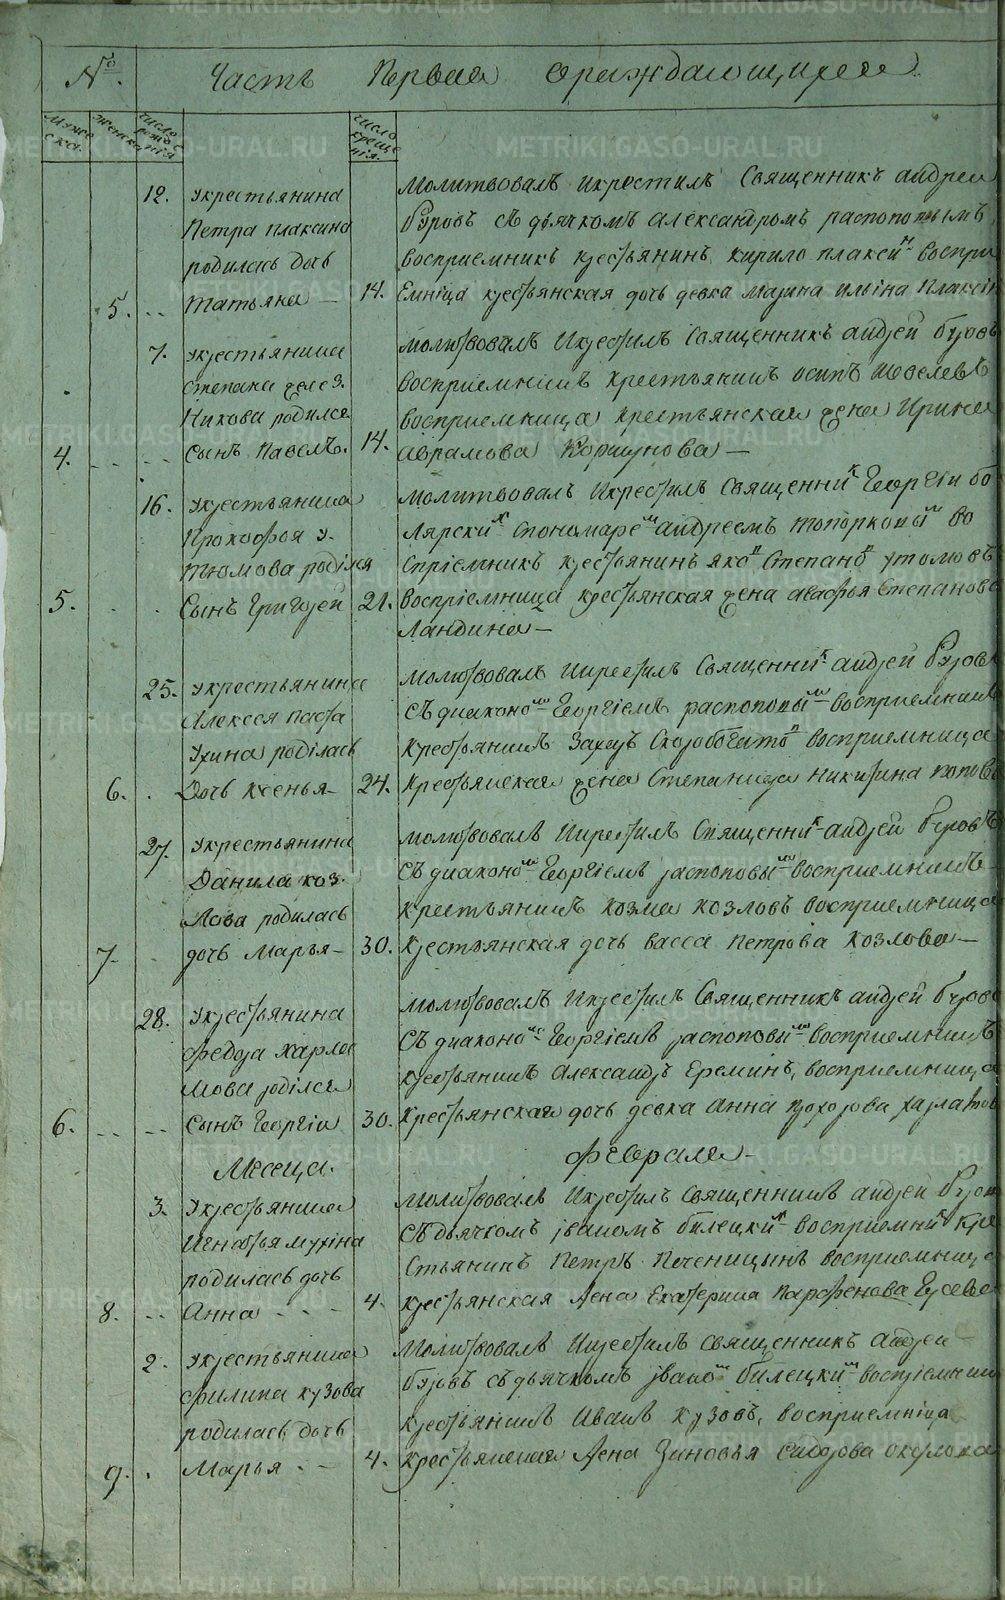 №. Часть Первая о раждающихся.
Муже ска. Женска. Число рожде нія Число креще нія.
12. у крестьянина Молитвовалъ и крестилъ Священникъ андреи
Петра плаксина Буровъ съ дьячкомъ александромъ распоповымъ
родилась дочь восприемникъ крестьянинъ кирило плаксинъ воспри
5. Татьяна — 14. Емница крестьянская дочь девка Марина ильина Плаксин
7. у крестьянина молитвовалъ и крестилъ Священникъ андрей буровъ
Степана желез восприемникъ крестьянинъ осипъ
Никова родился восприемница крестьянская жена Ирина
4. Сынъ Павелъ. 14. аврамова Коршунова —
16. у крестьянина Молитвовалъ и крестилъ Священникъ Георгіи бо
Прокофья у лярскиХ Спономаремъ андреемъ топорковымъ во
тюмова роділся Спріемникъ крестьянинъ яковъ Степановъ утюмовъ
5. Сынъ Григорей 21. воспріемница крестьянская жена авдотья Степанова
Ландина —
25. у крестьянина молитвовалъ и крестилъ Священникъ андрей буровъ
Алексея съ диакономъ Георгіемъ распоповымъ восприемникъ
Ухина роділась крестьянинъ Захаръ Скоробогатовъ восприемница
6. Дочь ксенья — 24. крестьянская жена Степанида никитина попов
27. у крестьянина молитвовалъ и крестилъ Священникъ андрей буровъ
Данила коз съ диакономъ Георгіемъ распоповымъ восприемникъ
Лова родилась крестьянинъ козма козловъ восприемница
7. дочь Марья — 30. крестьянская дочь васса петрова козлова —
28. у крестьянина молитвовалъ и крестилъ Священникъ андрей буровъ
федора харла съ диакономъ Георгіемъ распоповымъ восприемникъ
мова роділся крестьянинъ александръ Ереминъ, восприемница
6. Сынъ Георгіи 30. крестьянская дочь девка анна прохорова
Месеца. февраля —
3. у крестьянина молитвовалъ и крестилъ священникъ андрей буров
Игнатья мухина съ дьячкомъ іваномъ билецкимъ восприемникъ кре
родилась дочь стьянинъ Петръ Печеницынъ восприемница
8. Анна — 4. крестьянская жена Екатерина Парфенова Гусева
2. у крестьянина Молитвовалъ и крестилъ священникъ андреи
филипа кузова буровъ съ дьячкомъ іваномъ билецкимъ воспріемник
родилась дочь крестьянинъ Иванъ кузовъ, восприемніца
9. Марья — 4. крестьянская жена Зиновья сидорова окулова
METRIKI.GASO-URAL.RU